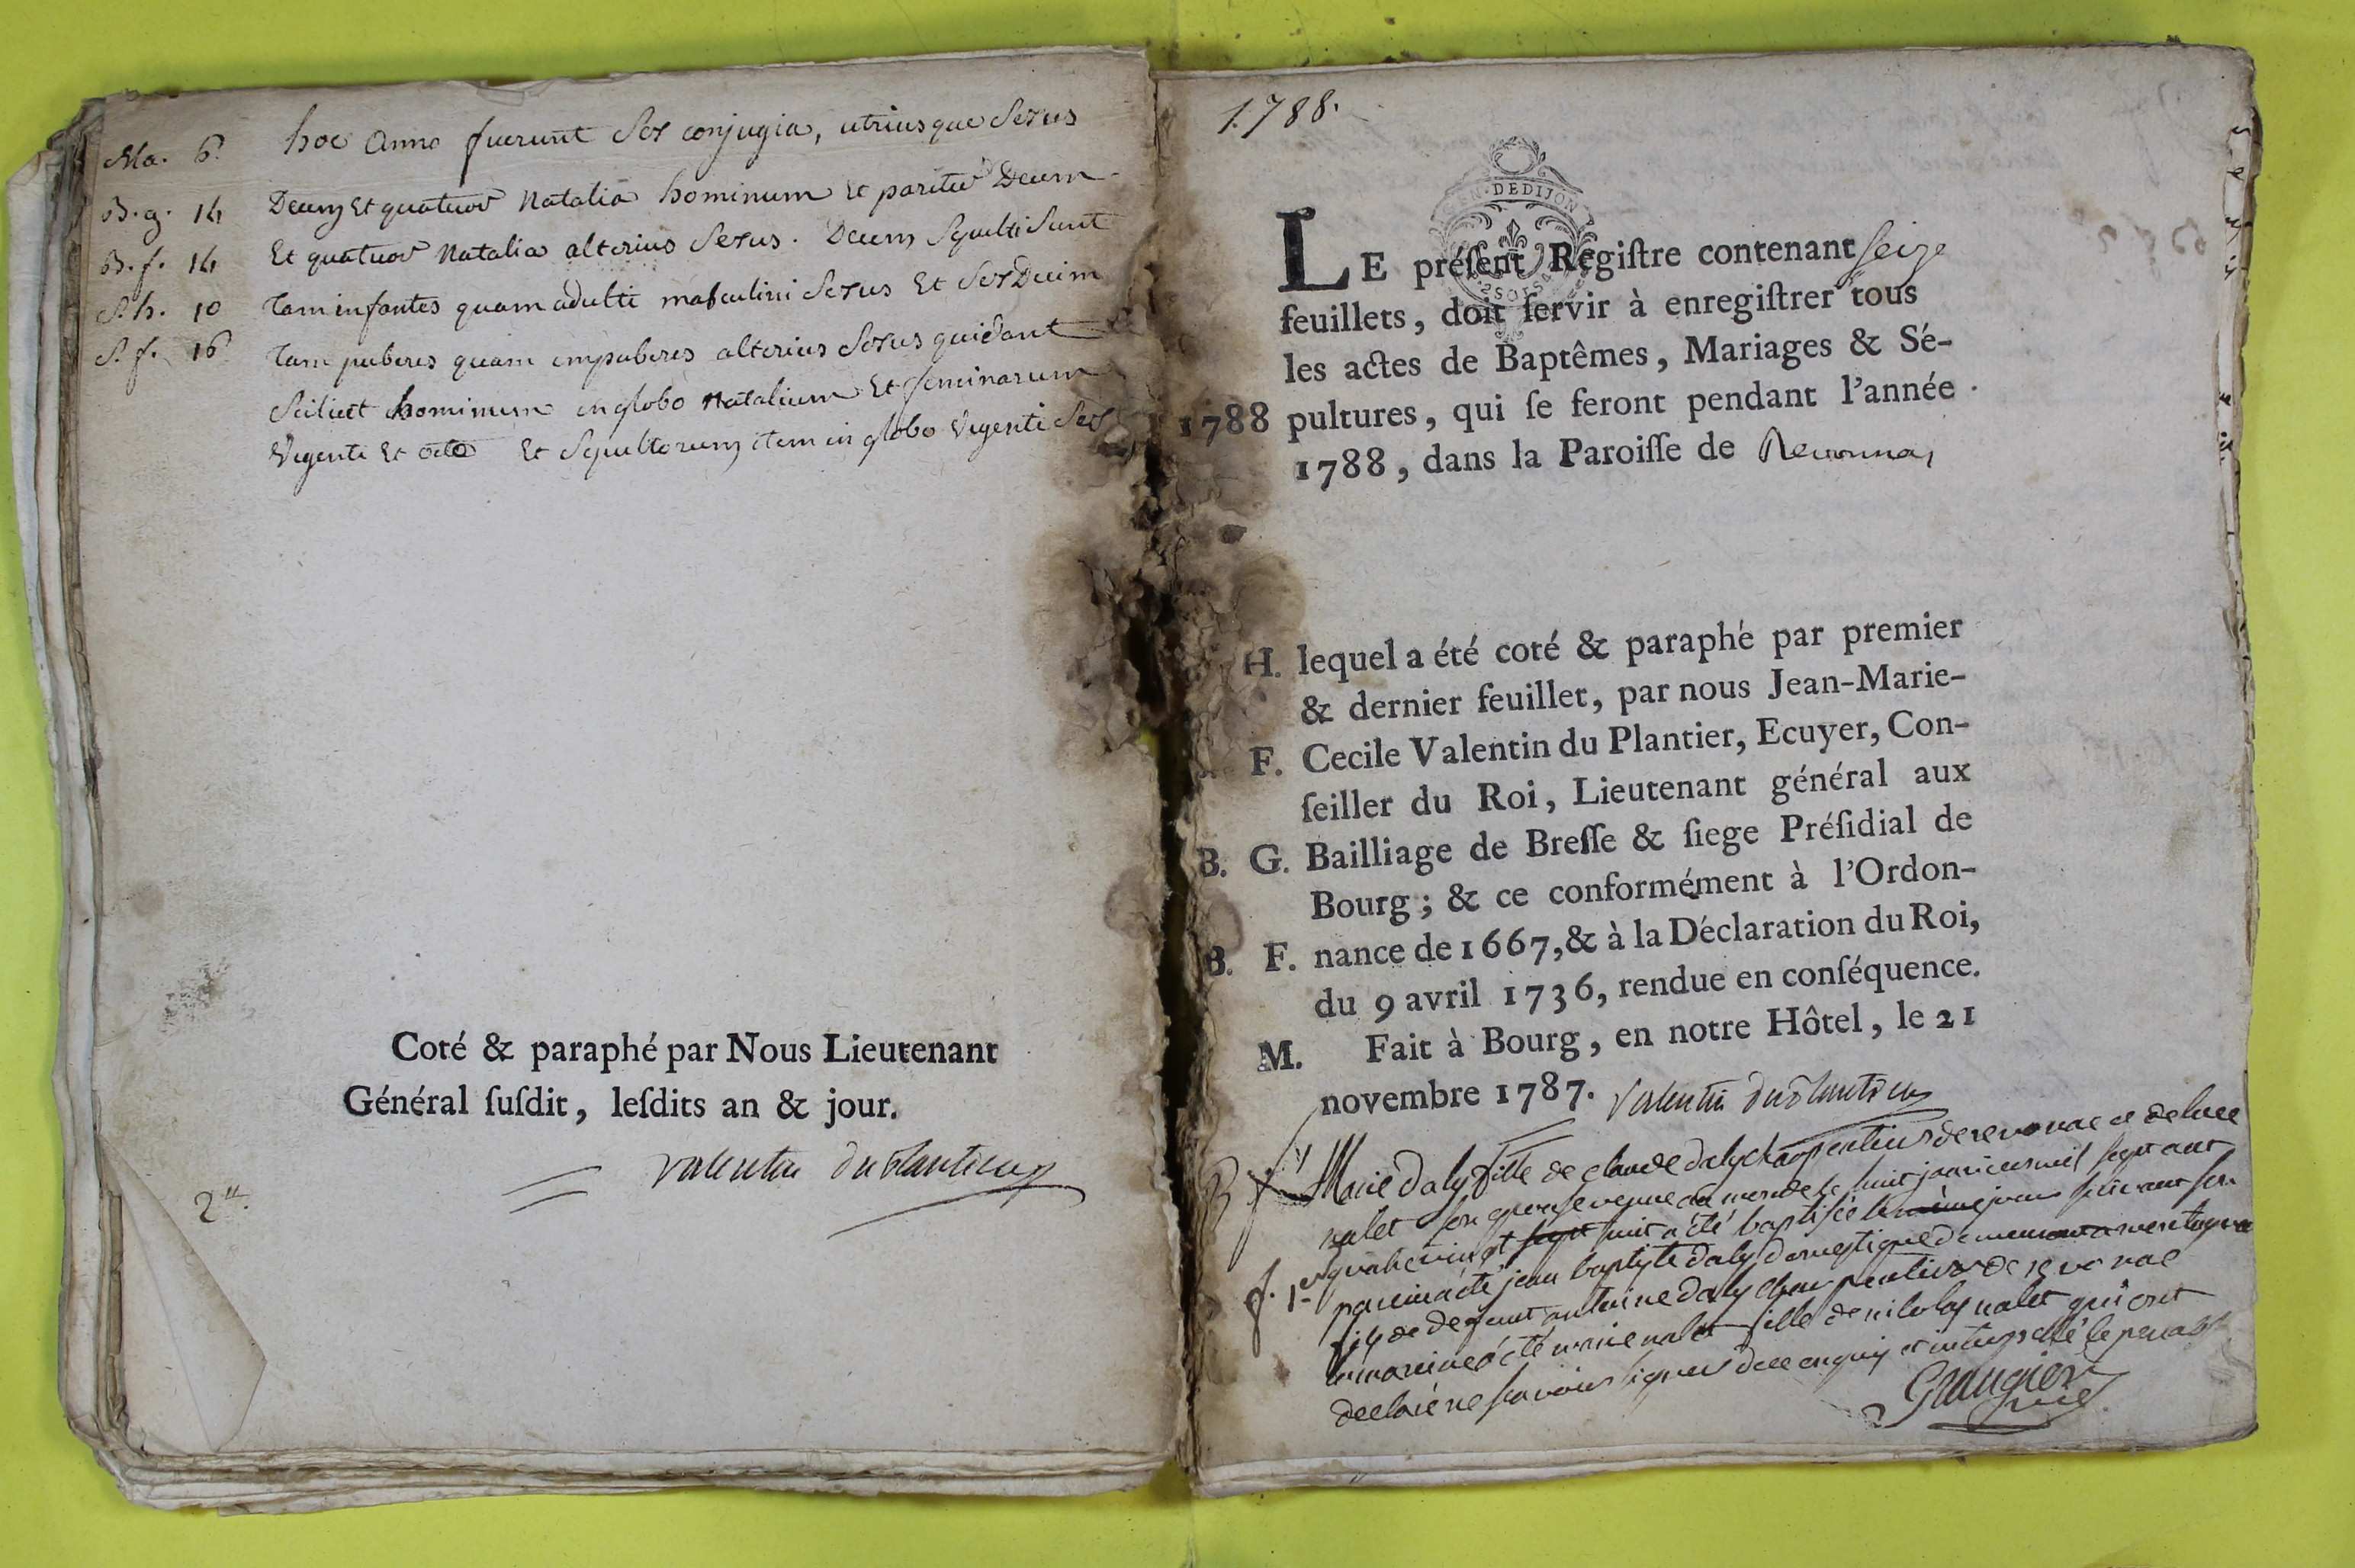 Ma. 6. hoc Anno fuerunt sex conjugia, utriusque sexus
B. g. 14 Decem Et quatuor Natalia hominum Et pariter Decem
B. f. 14 Et quatuor Natalia alterius sexus. Decem sepulti sunt
S. h. 10 Tam infantes quam adulti masculini sexus Et sex Decim
S. f. 16 Tam puberes quam impuberes alterius sexus quidant
scilicet hominum in globo Natalium Et feminarum
Vigenti Et octo Et sepultorum item in globo Vigenti sex
Coté & paraphé par Nous Lieutenant
Général ſuſdit, leſdits an & jour.
Valentin duplantier
2
1788.
DEDIJON
LE préſent Regiſtre contenant seize
feuillets, doit ſervir à enregiſtrer tous
les actes de Baptêmes, Mariages & Sé-
1788 pultures, qui ſe feront pendant l'année
1788, dans la Paroiſſe de Revonnas
H. lequel a été coté & paraphé par premier
& dernier feuillet, par nous Jean-Marie-
F. Cecile Valentin du Plantier, Ecuyer, Con-
ſeiller du Roi, Lieutenant général aux
B. G. Bailliage de Breſſe & ſiege Préſidial de
Bourg; & ce conformément à l'Ordon-
B. F. nance de 1667, & à la Déclaration du Roi,
du 9 avril 1736, rendue en conſéquence.
M. Fait à Bourg, en notre Hôtel, le 21
novembre 1787. Valentin duplantier
B f Marie daly fille de claude daly charpentier de revonac et de luce
nalet son epouse venue au monde le huit janvier mil sept cent
f. 1er quatrevingt sept huit a été baptisée le même jour suivant son
parrin a été jean baptiste daly domestique demeurant a
fils de defunt antoine daly charpentier de revonac
la marine a été marie nalet fille de nicolas nalet qui ont
declaré ne scavoir signer de ce enquis et interpellé le
Grangier
curé